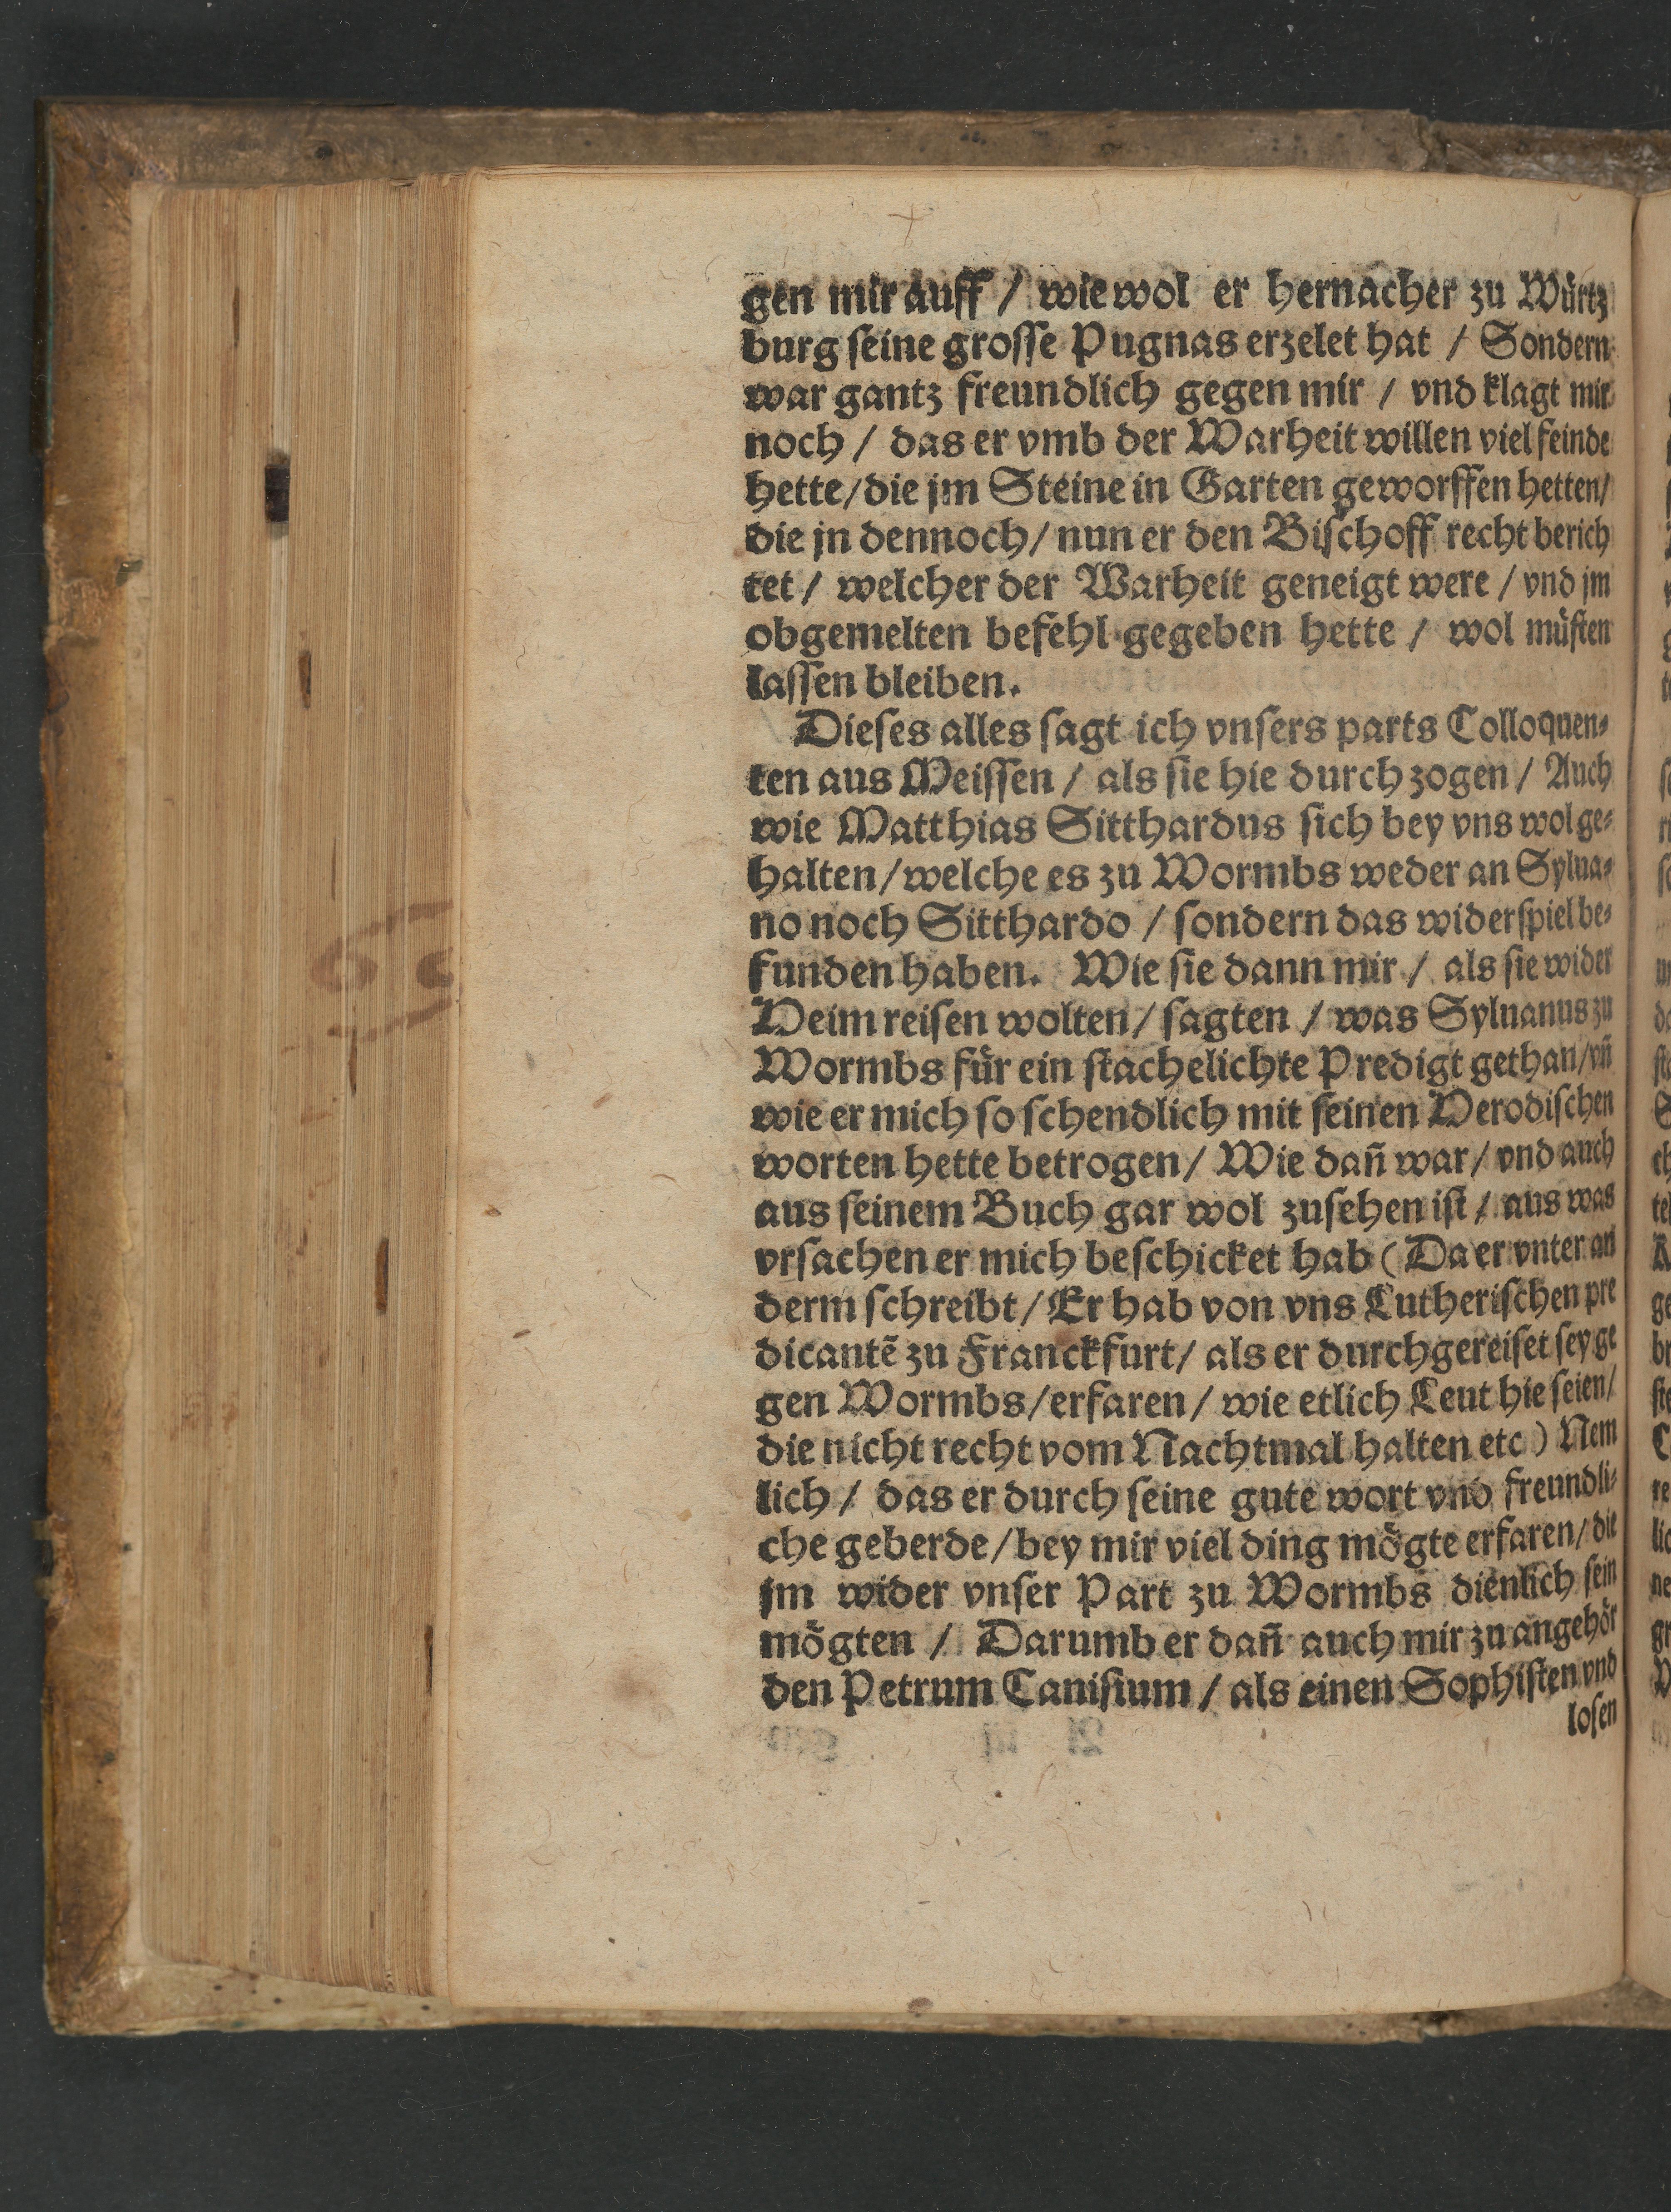 gen mir auff / wiewol er hernacher zu Würtz
burg seine grosse Pugnas erzelet hat / Sondern
war gantz freundlich gegen mir / vnd klagt mir
noch / das er vmb der Warheit willen viel feinde
hette/die jm Steine in Garten geworffen hetten/
die jn dennoch/ nun er den Bischoff recht berich
tet / welcher der Warheit geneigt were / vnd jm
obgemelten befehl gegeben hette / wol müsten
lassen bleiben.
Dieses alles sagt ich vnsers parts Colloquen⸗
ten aus Meissen / als sie hie durch zogen / Auch
wie Matthias Sitthardus sich bey vns wol ge⸗
halten/welche es zu Wormbs weder an Sylua⸗
no noch Sitthardo / sondern das widerspiel be⸗
funden haben. Wie sie dann mir / als sie wider
Heim reisen wolten/ sagten / was Syluanus zu
Wormbs für ein stachelichte Predigt gethan/vñ
wie er mich so schendlich mit seinen Herodischen
worten hette betrogen/ Wie dañ war/ vnd auch
aus seinem Buch gar wol zusehen ist / aus was
vrsachen er mich beschicket hab (Da er vnter an
derm schreibt/ Er hab von vns Lutherischen pre
dicantẽ zu Franckfurt/ als er durchgereiset sey ge
gen Wormbs/erfaren / wie etlich Leut hie seien/
die nicht recht vom Nachtmal halten etc) Nem
lich / das er durch seine gute wort vnd freundli⸗
che geberde/bey mir viel ding mögte erfaren/ die
jm wider vnser Part zu Wormbs dienlich sein
mögten / Darumb er dañ auch mir zu angehör
den Petrum Canisium / als einen Sophisten vnd
losen